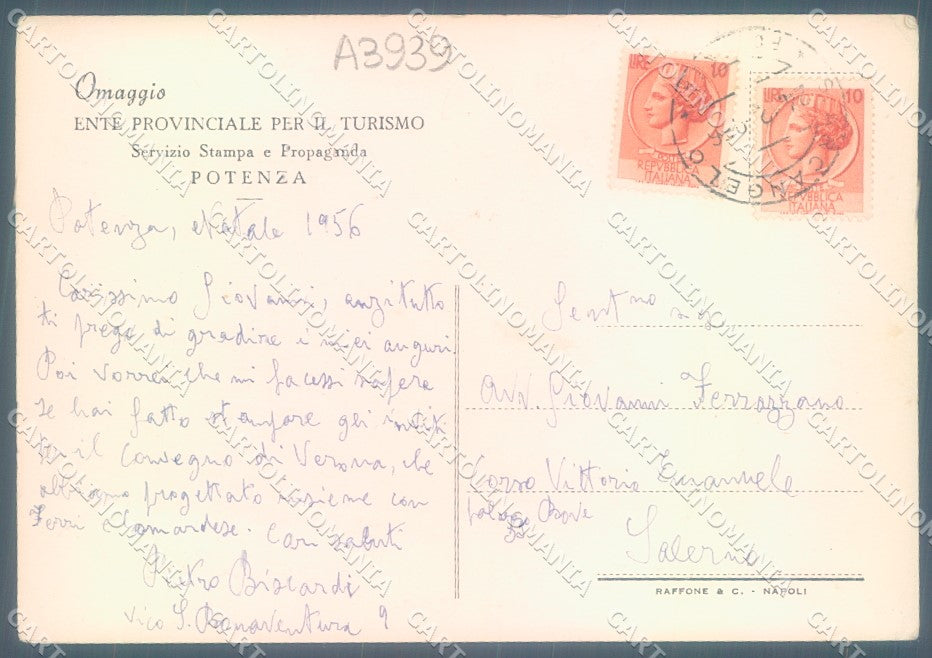 A3939
Omaggio
ENTE PROVINCIALE PER IL TURISMO
Servizio Stampa e Propaganda
POTENZA
LIRE 10
REPVBBLICA
ITALIANA
LIRE 10
REPVBBLICA
ITALIANA
Potenza, Natale 1956
Carissimo Giovanni, anzitutto
ti prego di gradire i miei auguri.
Poi vorrei che mi facessi sapere
se hai fatto stampare gli inviti
il convegno di Verona, che
abbiamo progettato insieme con
Ferri e Lomardese. Cari saluti
Pietro Biscardi
Vico S. Bonaventura 9
Gent mo
Avv. Giovanni Ferrazzano
Corso Vittorio Emanuele
palazzo
Salerno
RAFFONE & C. - NAPOLI
CARTOLINOMANIA